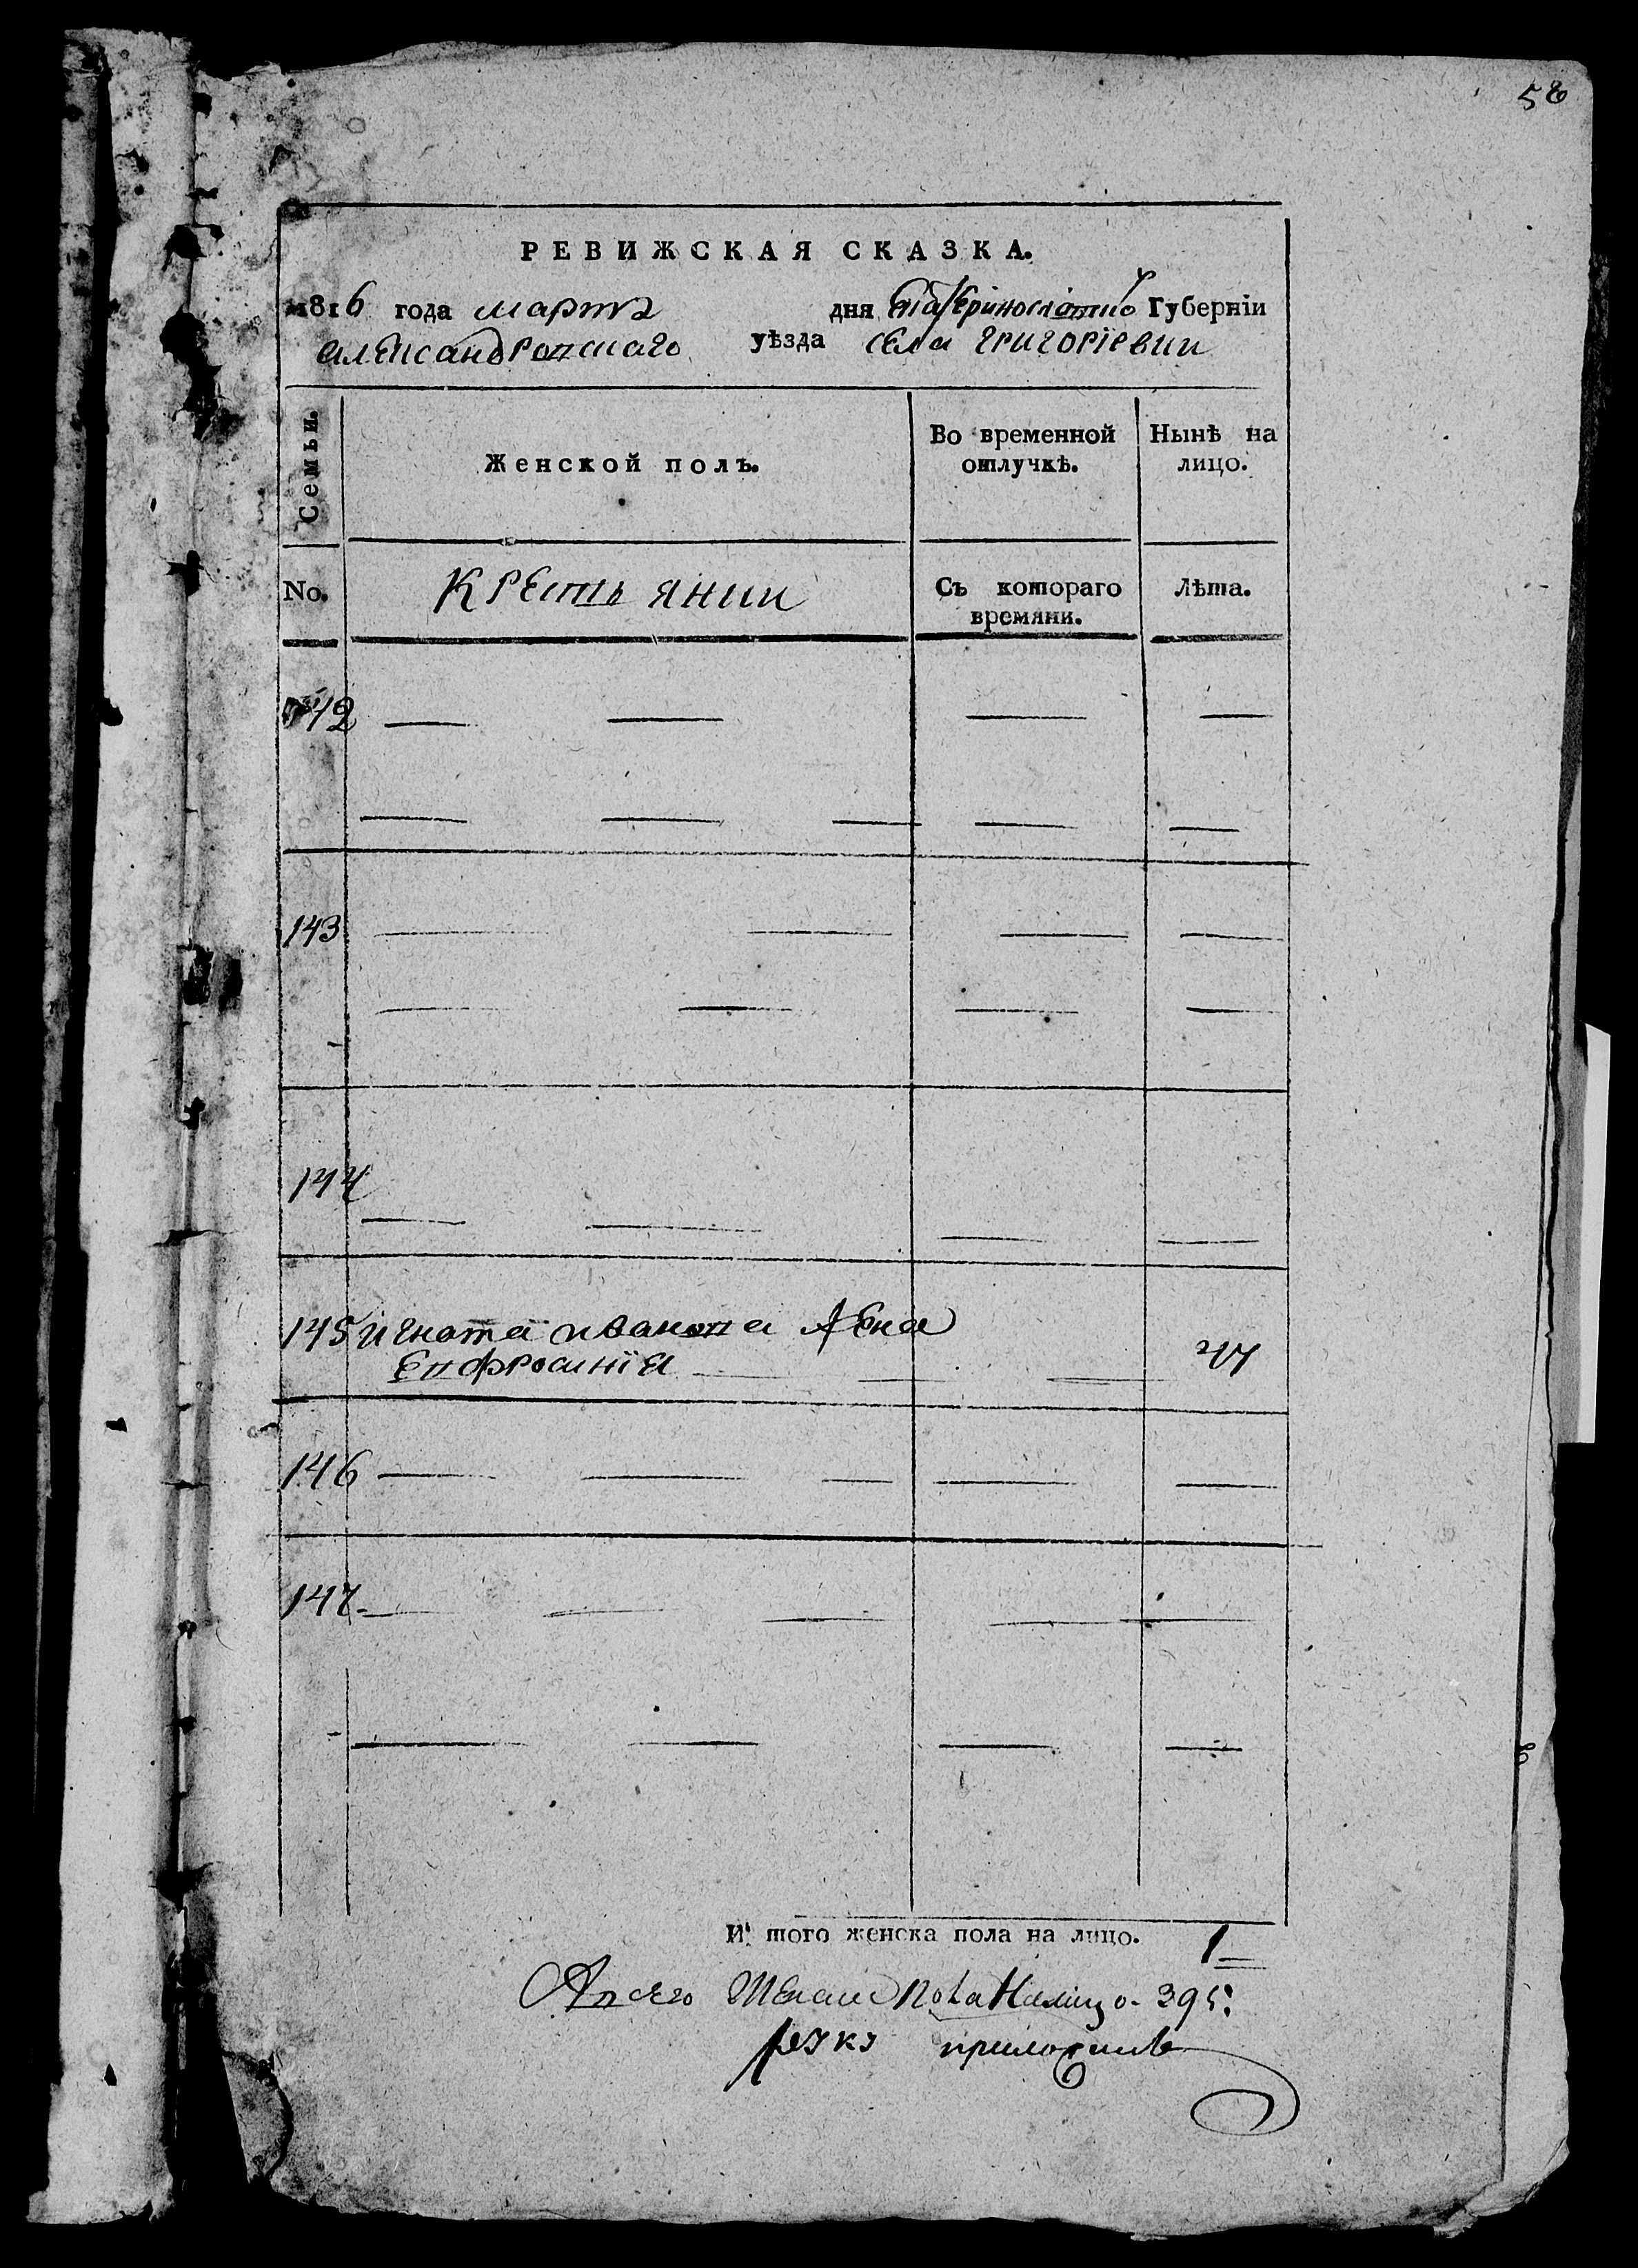 58
РЕВИЖСКАЯ СКАЗКА.
1816 года марта дня Екатеринославской Губерніи
александровскаго уѣзда села григорїевки
Семьи. Женской полъ. Во временной отлучкѣ. Нынѣ на лицо.
No. Крестьянки Съ котораго времяни. Лѣта.
142
143
144
145 игната иванова жена
Евфросинїя
146
147
И того женска пола на лицо. 1
Авсего женска пола Налицо 395:
руку приложилъ